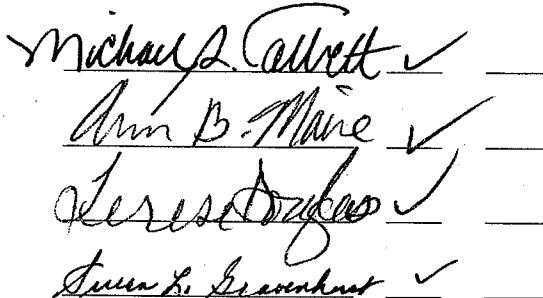 Michael S. Talbett ✓
Ann B. Maire ✓
Terese Douglass ✓
Susan L. Gravenhurst ✓